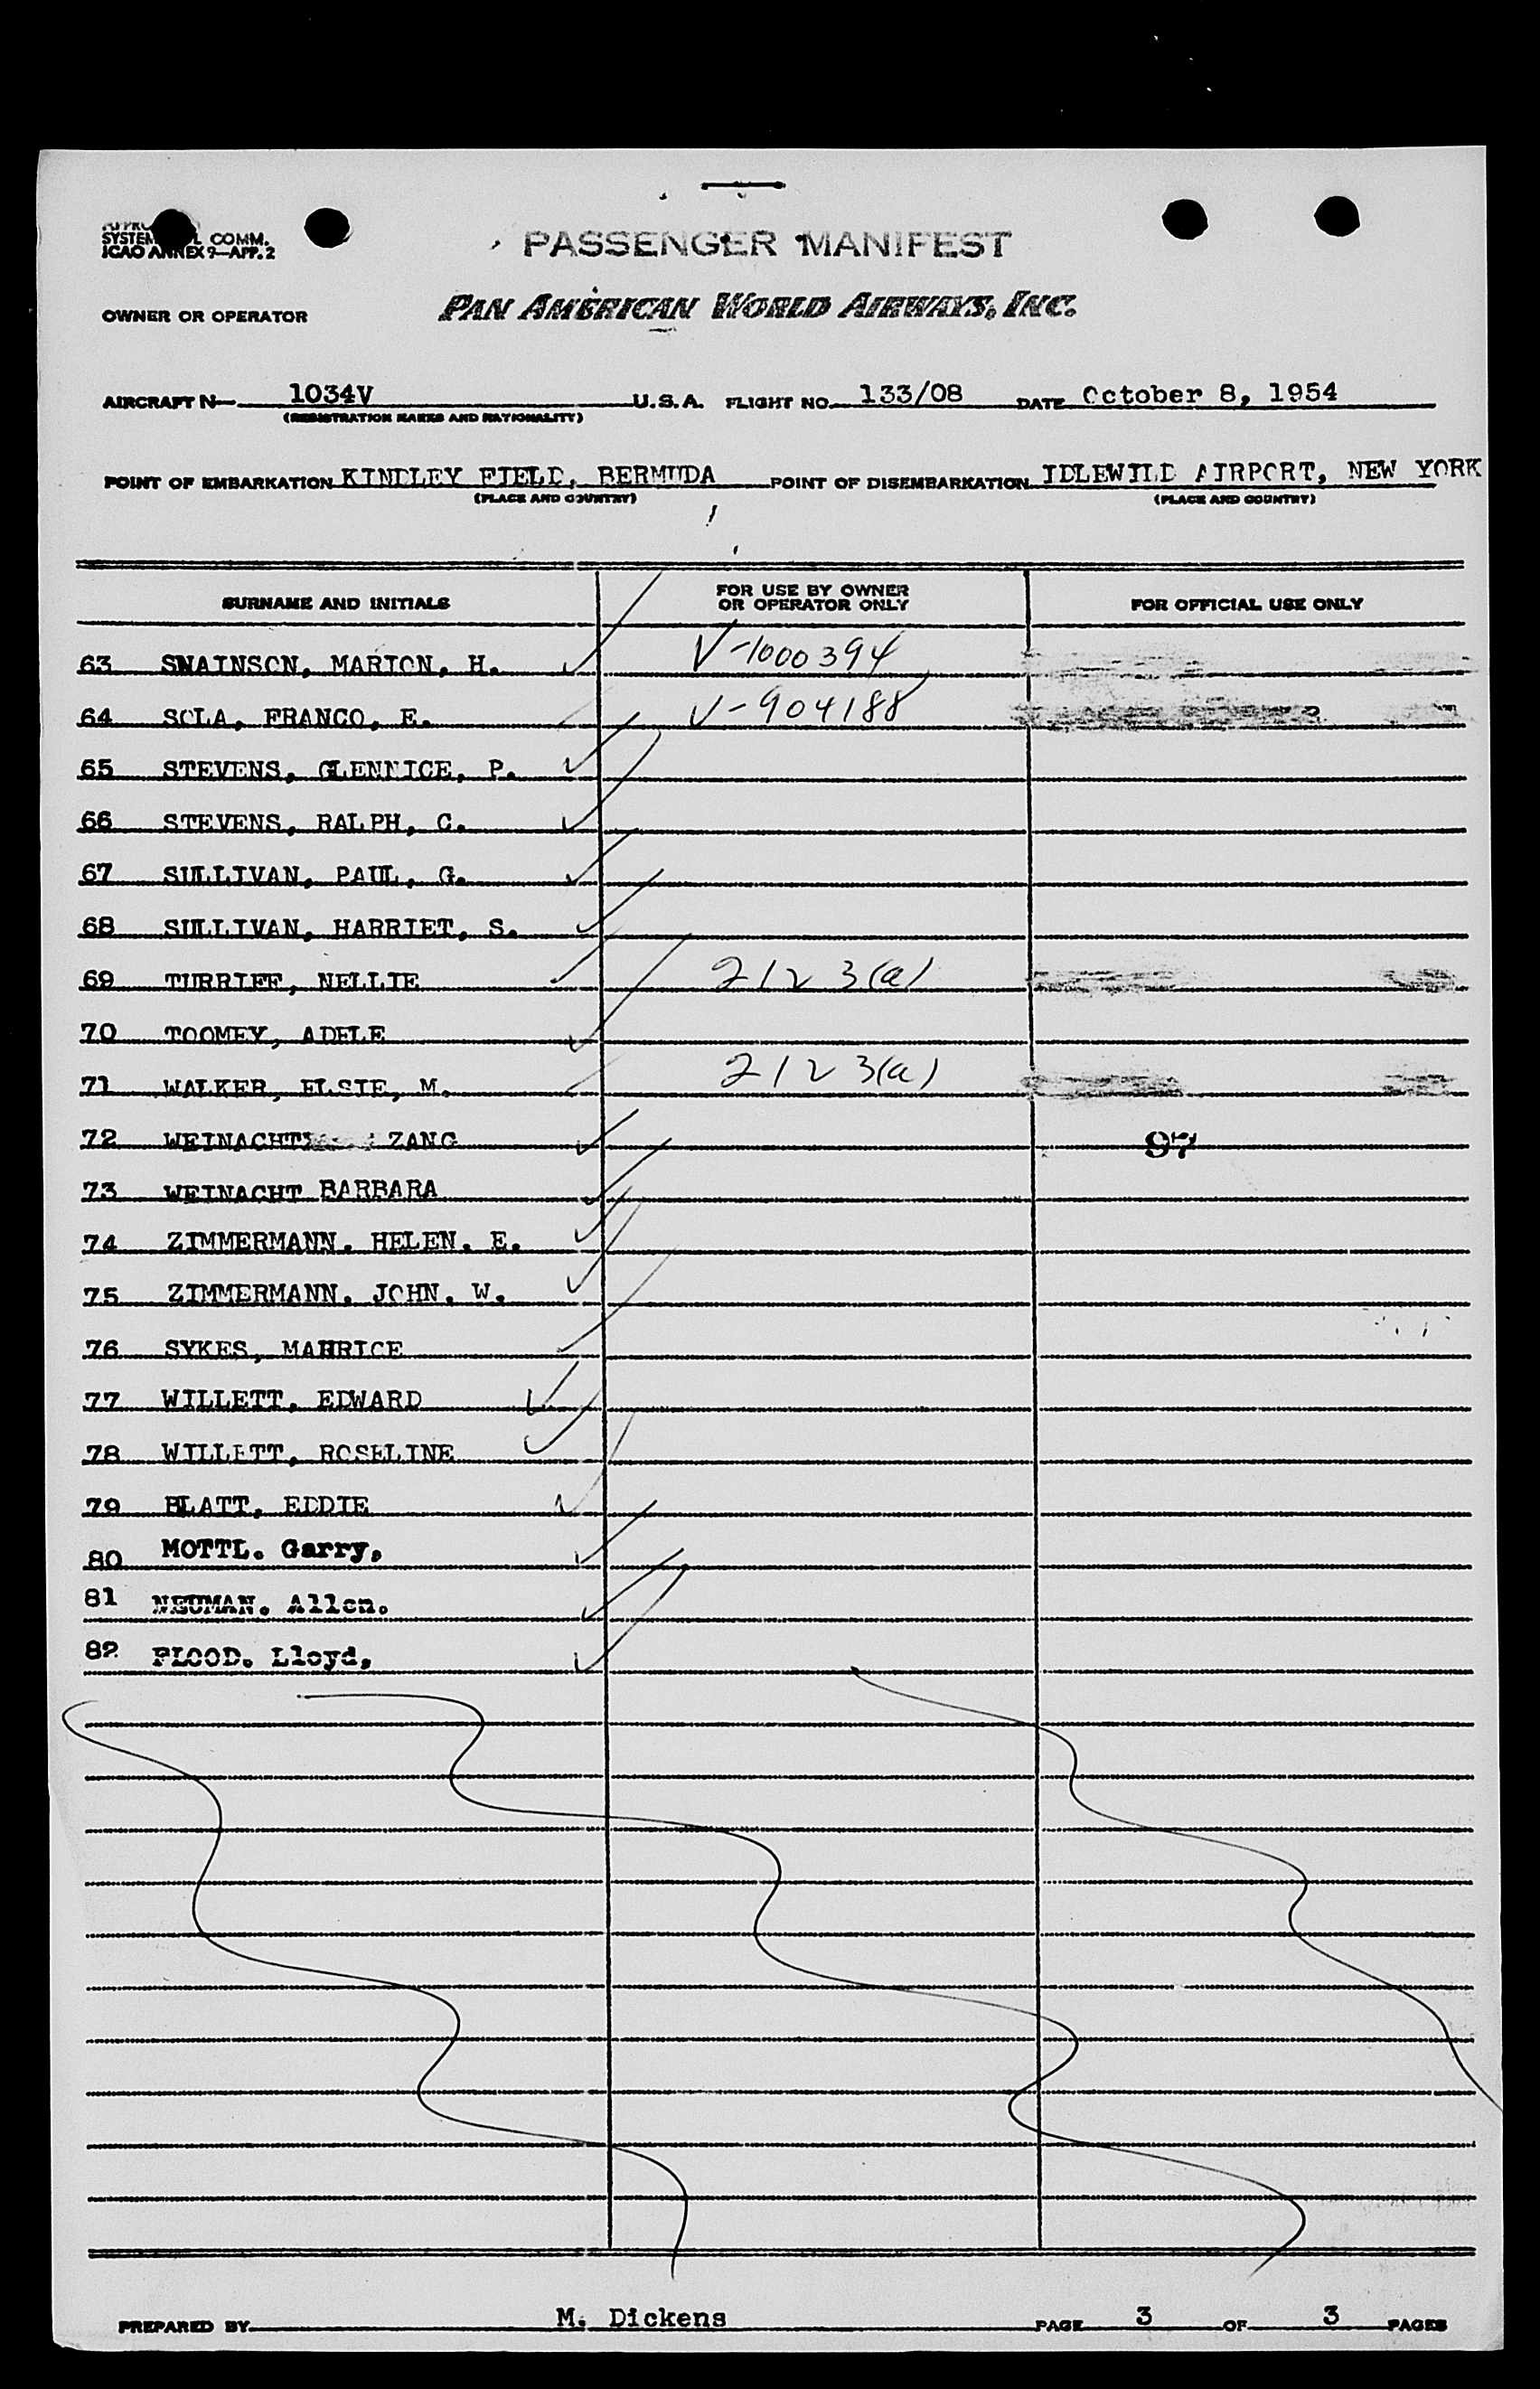 SYSTEM COMM.
ICAO ANNEX 9—APP. 2
PASSENGER MANIFEST
OWNER OR OPERATOR PAN AMERICAN WORLD AIRWAYS, INC.
AIRCRAFT N— 1034V U.S.A. FLIGHT NO. 133/08 DATE October 8, 1954
(REGISTRATION MARKS AND NATIONALITY)
POINT OF EMBARKATION KINDLEY FIELD, BERMUDA POINT OF DISEMBARKATION IDLEWILD AIRPORT, NEW YORK
(PLACE AND COUNTRY) (PLACE AND COUNTRY)
SURNAME AND INITIALS FOR USE BY OWNER OR OPERATOR ONLY FOR OFFICIAL USE ONLY
63 SWAINSON, MARION, H. V-1000394
64 SOLA, FRANCO, E. V-904188
65 STEVENS, GLENNICE, P.
66 STEVENS, RALPH, C.
67 SULLIVAN, PAUL, G.
68 SULLIVAN, HARRIET, S.
69 TURRIFF, NELLIE 212 3(a)
70 TOOMEY, ADELE
71 WALKER, ELSIE, M. 212 3(a)
72 WEINACHT ZANG 97
73 WEINACHT BARBARA
74 ZIMMERMANN. HELEN. E.
75 ZIMMERMANN. JOHN. W.
76 SYKES, MAURICE
77 WILLETT, EDWARD
78 WILLETT, ROSELINE
79 BLATT, EDDIE
80 MOTTL. Garry,
81 NEUMAN. Allen.
82 FLOOD. Lloyd,
PREPARED BY M. Dickens PAGE 3 OF 3 PAGES